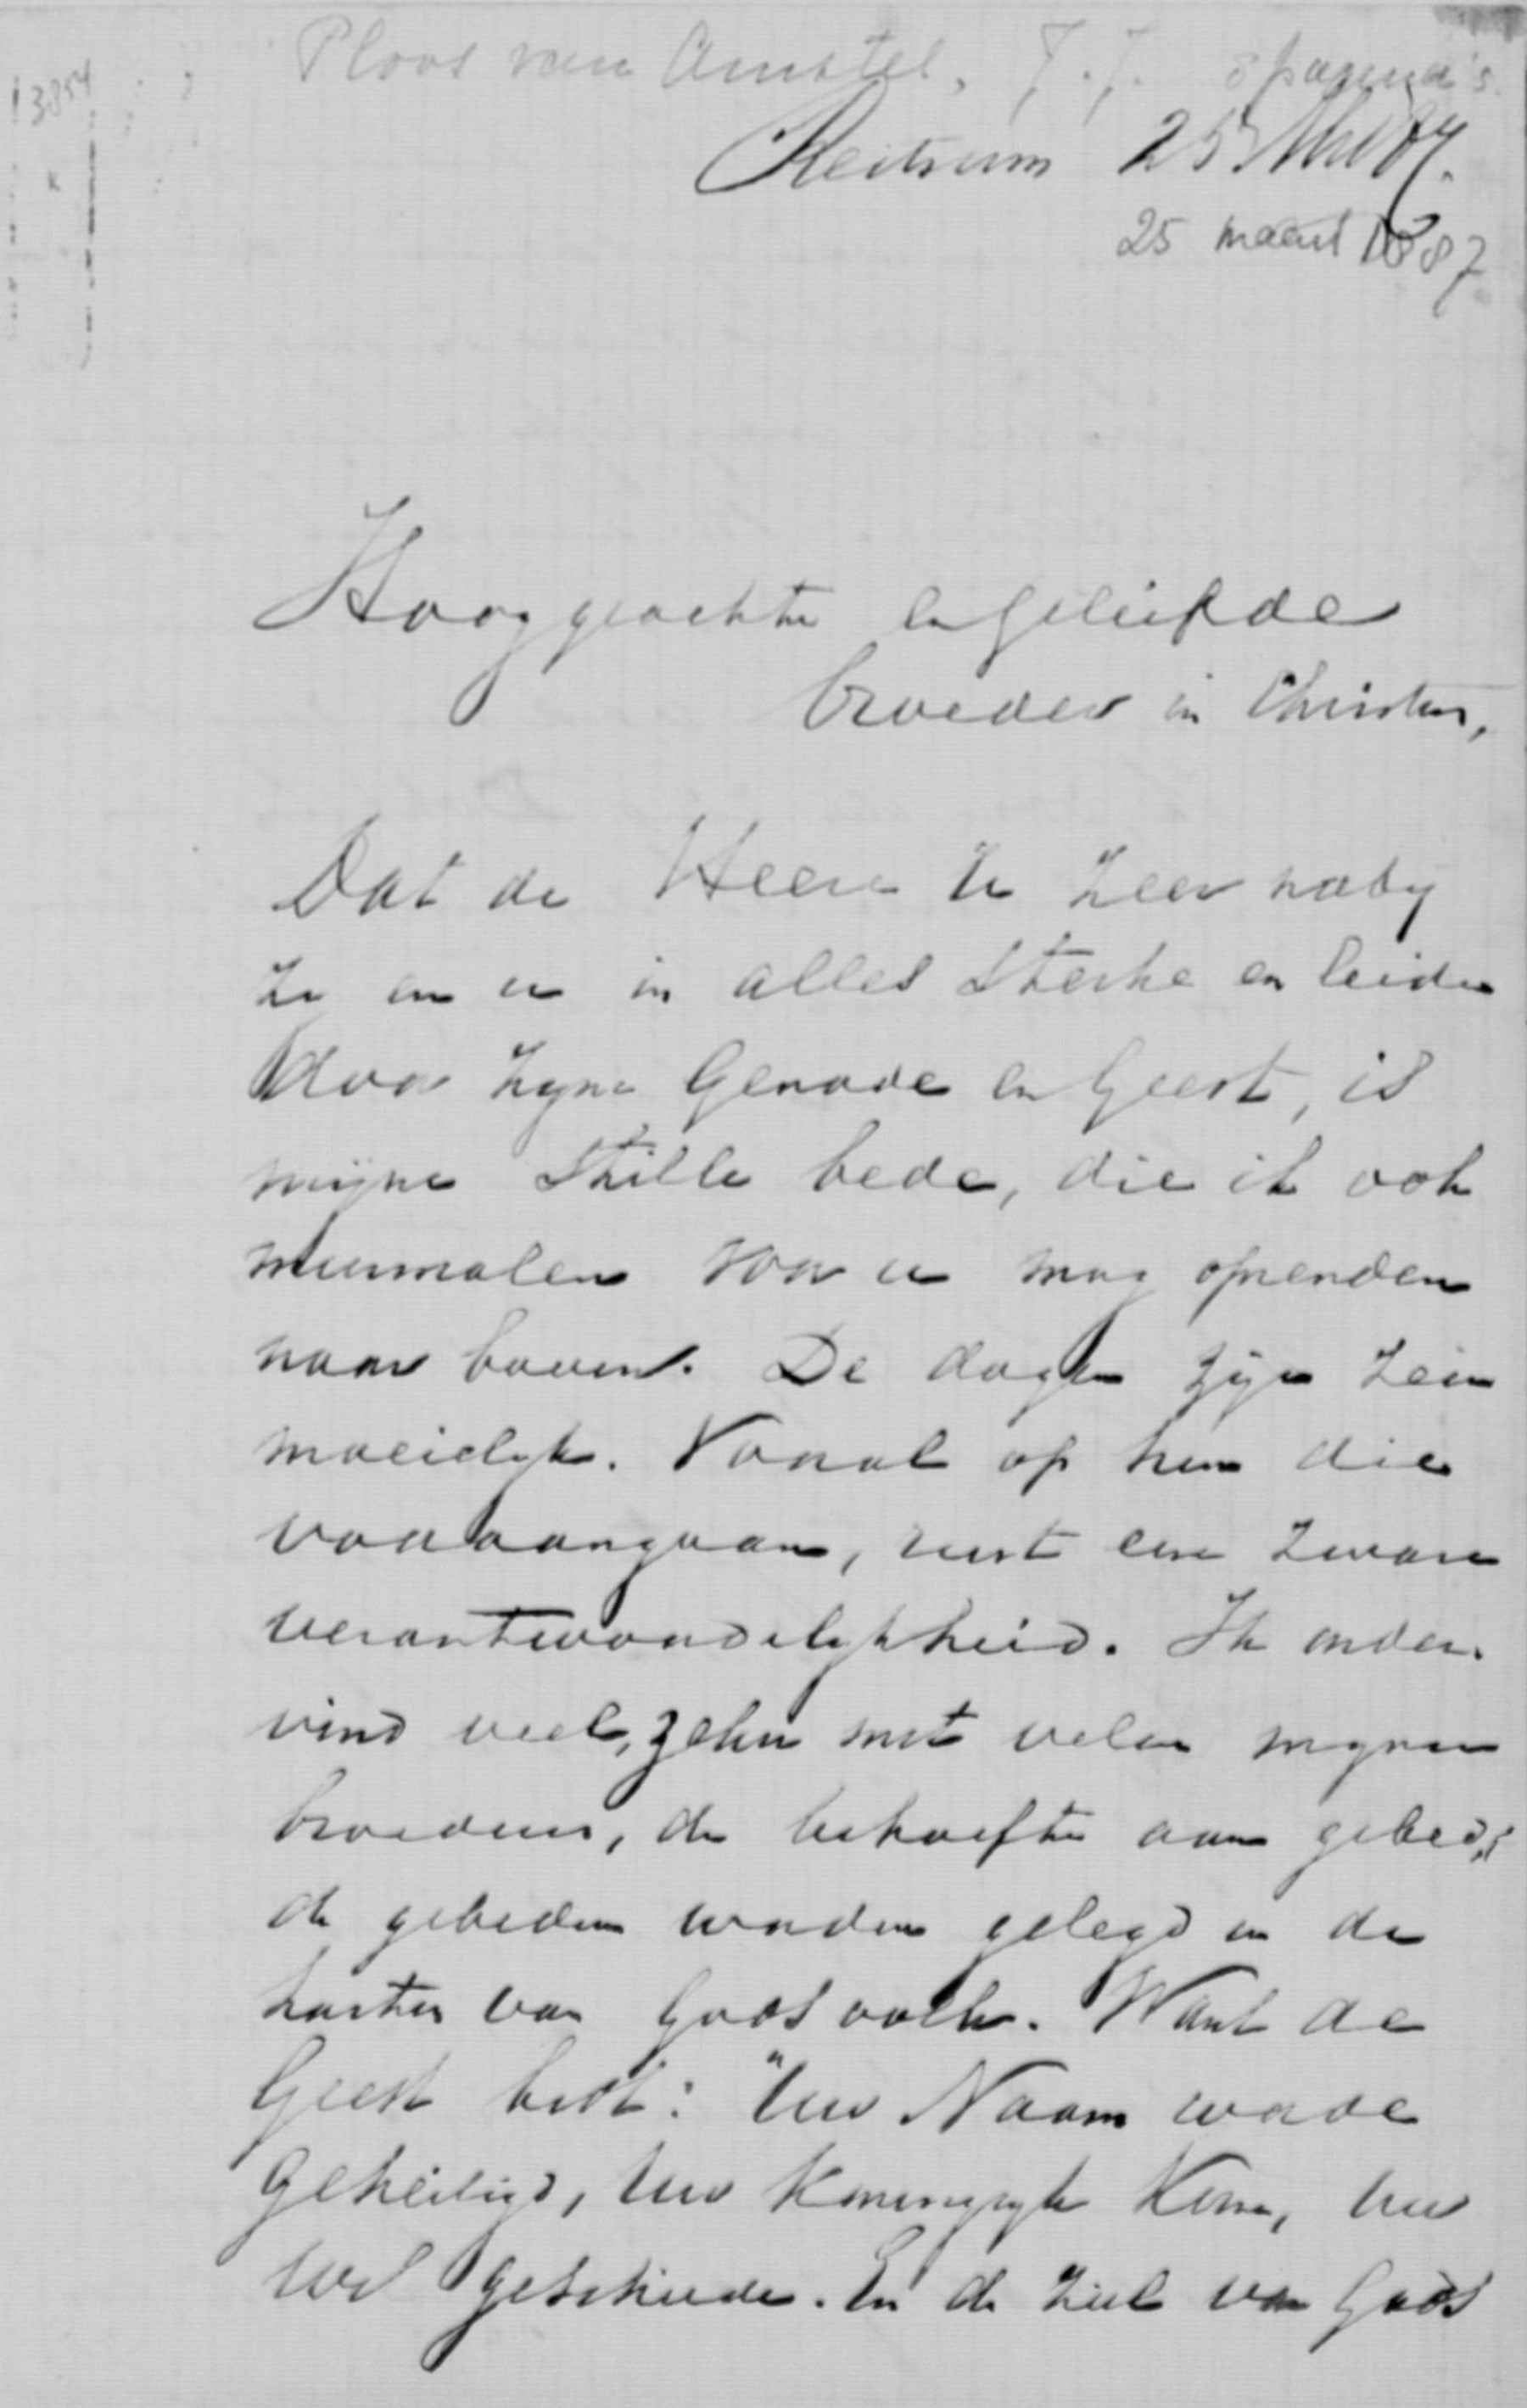 Ploos van Amstel, J.J. 8 pagina's.
13854
Reitsum 25 Mrt 87.
25 maart 1887
Hooggeachte en geliefde
broeder in Christus,
Dat de Heere U zeer naby
zy en u in alles sterke en leide
door Zyne Genade en Geest, is
mijne stille bede, die ik ook
meermalen voor u mag opzenden
naar boven. De dagen zijn zeer
moeielyk. Vooral op hen die
vooraangaan, rust eene zware
verantwoordelykheid. Ik onder-
vind veel, zeker met velen myner
broederen, de behoefte aan gebed;
de gebeden worden gelegd in de
harten van Gods volk. Want de
Geest bidt: "Uw Naam worde
geheiligd, Uw Koningryk Kome, Uw
wil geschiede. En de ziel van Gods